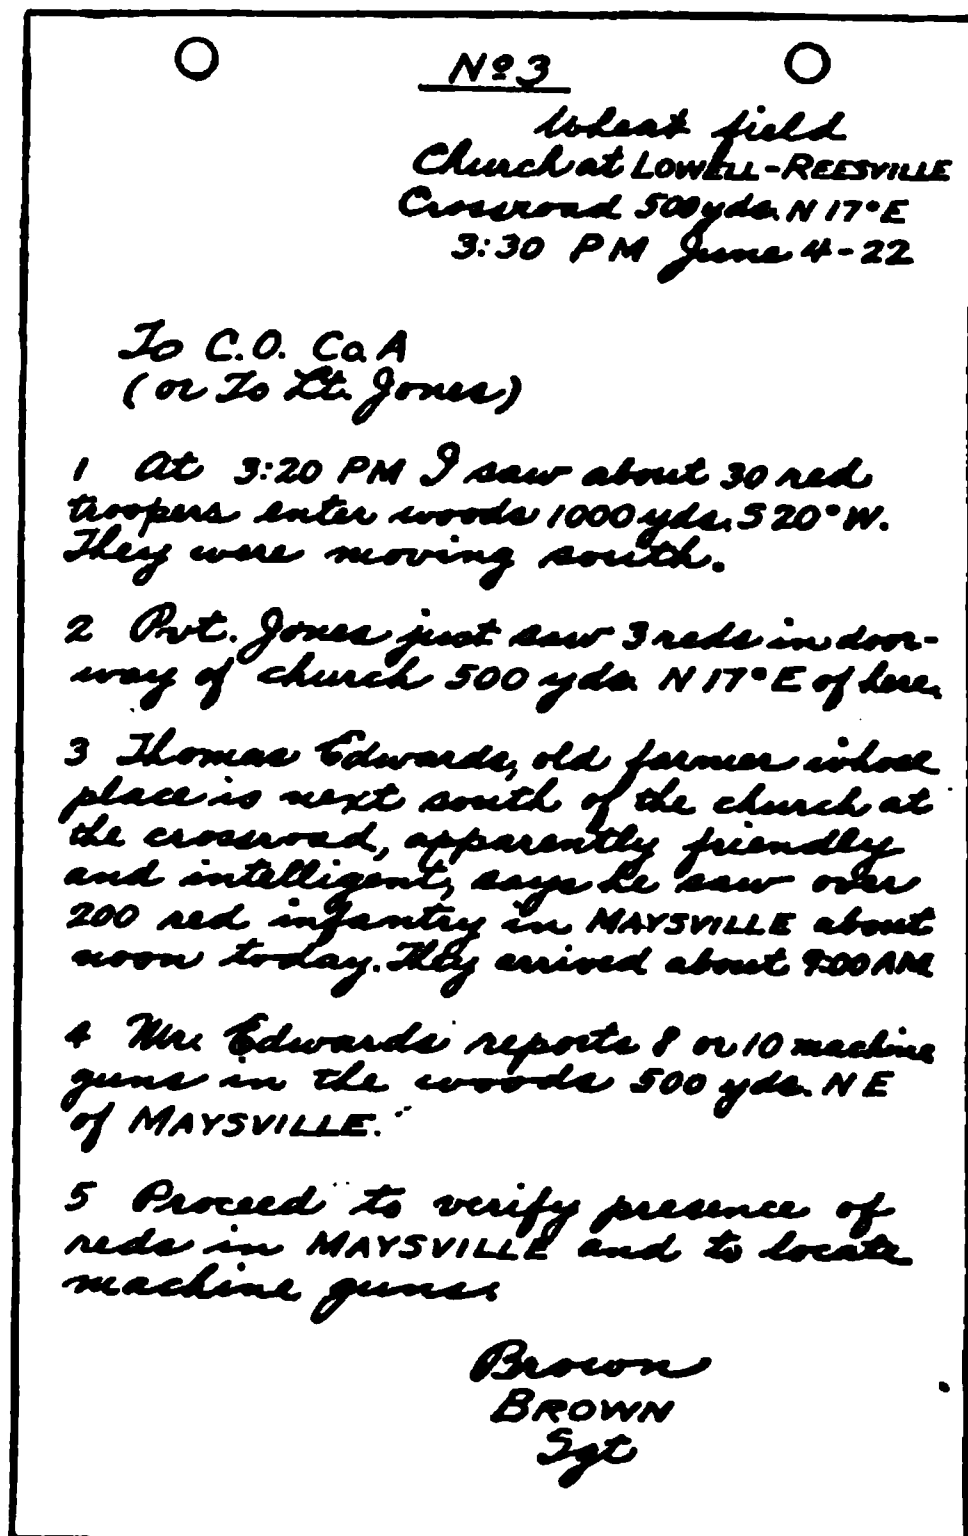 Nº 3
Wheat field
Church at LOWELL-REESVILLE
Crossroad 500 yds. N 17° E
3:30 PM June 4-22
To C.O. Co. A
(or To Lt. Jones)
1 At 3:20 PM I saw about 30 red
troopers enter woods 1000 yds. S 20° W.
They were moving south.
2 Pvt. Jones just saw 3 reds in door-
way of church 500 yds. N 17° E of here.
3 Thomas Edwards, old farmer whose
place is next south of the church at
the crossroad, apparently friendly
and intelligent, says he saw over
200 red infantry in MAYSVILLE about
noon today. They arrived about 9:00 AM
4 Mr. Edwards reports 8 or 10 machine
guns in the woods 500 yds. N E
of MAYSVILLE.
5 Proceed to verify presence of
reds in MAYSVILLE and to locate
machine guns.
Brown
BROWN
Sgt